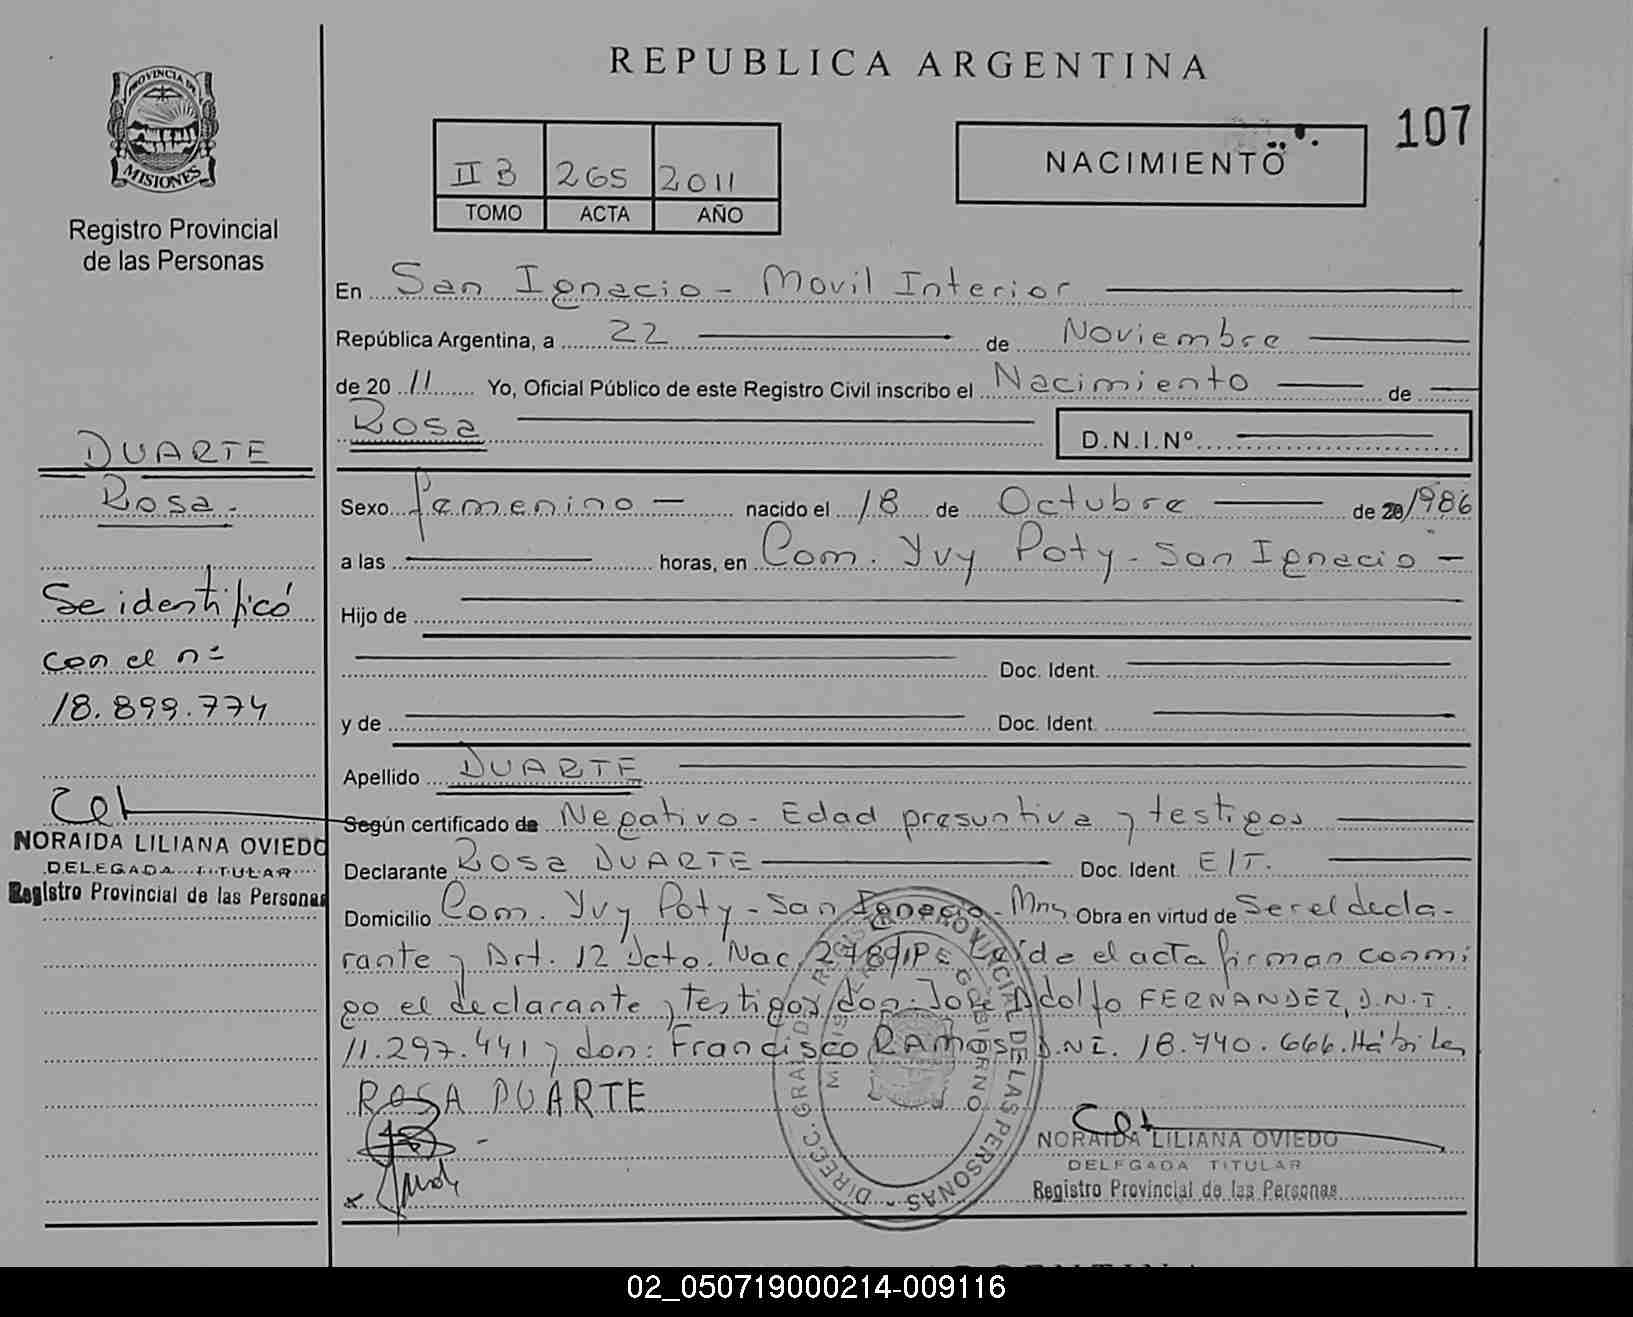 REPUBLICA ARGENTINA
PROVINCIA DE
MISIONES
Registro Provincial
de las Personas
II B 265 2011
TOMO ACTA AÑO
NACIMIENTO
107
En San Ignacio - Movil Interior
República Argentina, a 22 de Noviembre
de 20 11 Yo, Oficial Público de este Registro Civil inscribo el Nacimiento de
Rosa D.N.I.Nº
DUARTE
Rosa.
Se identificó
con el nº
18.899.774
NORAIDA LILIANA OVIEDO
DELEGADA TITULAR
Registro Provincial de las Personas
Sexo femenino - nacido el 18 de Octubre de 20 1986
a las horas, en Com. Yvy Poty - San Ignacio -
Hijo de
Doc. Ident.
y de Doc. Ident.
Apellido DUARTE
Según certificado de Negativo - Edad presuntiva y testigos
Declarante Rosa DUARTE Doc. Ident. E/T.
Domicilio Com. Yvy Poty - San Ignacio - Mns Obra en virtud de Ser el decla-
rante y Art. 12 Dcto. Nac. Leída el acta firman conmi
go el declarante y testigos don: José Adolfo FERNANDEZ, D.N.I.
11.297.441 y don: Francisco RAMOS D.NI. 18.740.666. Hábiles
ROSA DUARTE
DIREC. GRAL. REGISTRO PROVINCIAL DE LAS PERSONAS
GOBIERNO
NORAIDA LILIANA OVIEDO
DELEGADA TITULAR
Registro Provincial de las Personas
02_050719000214-009116